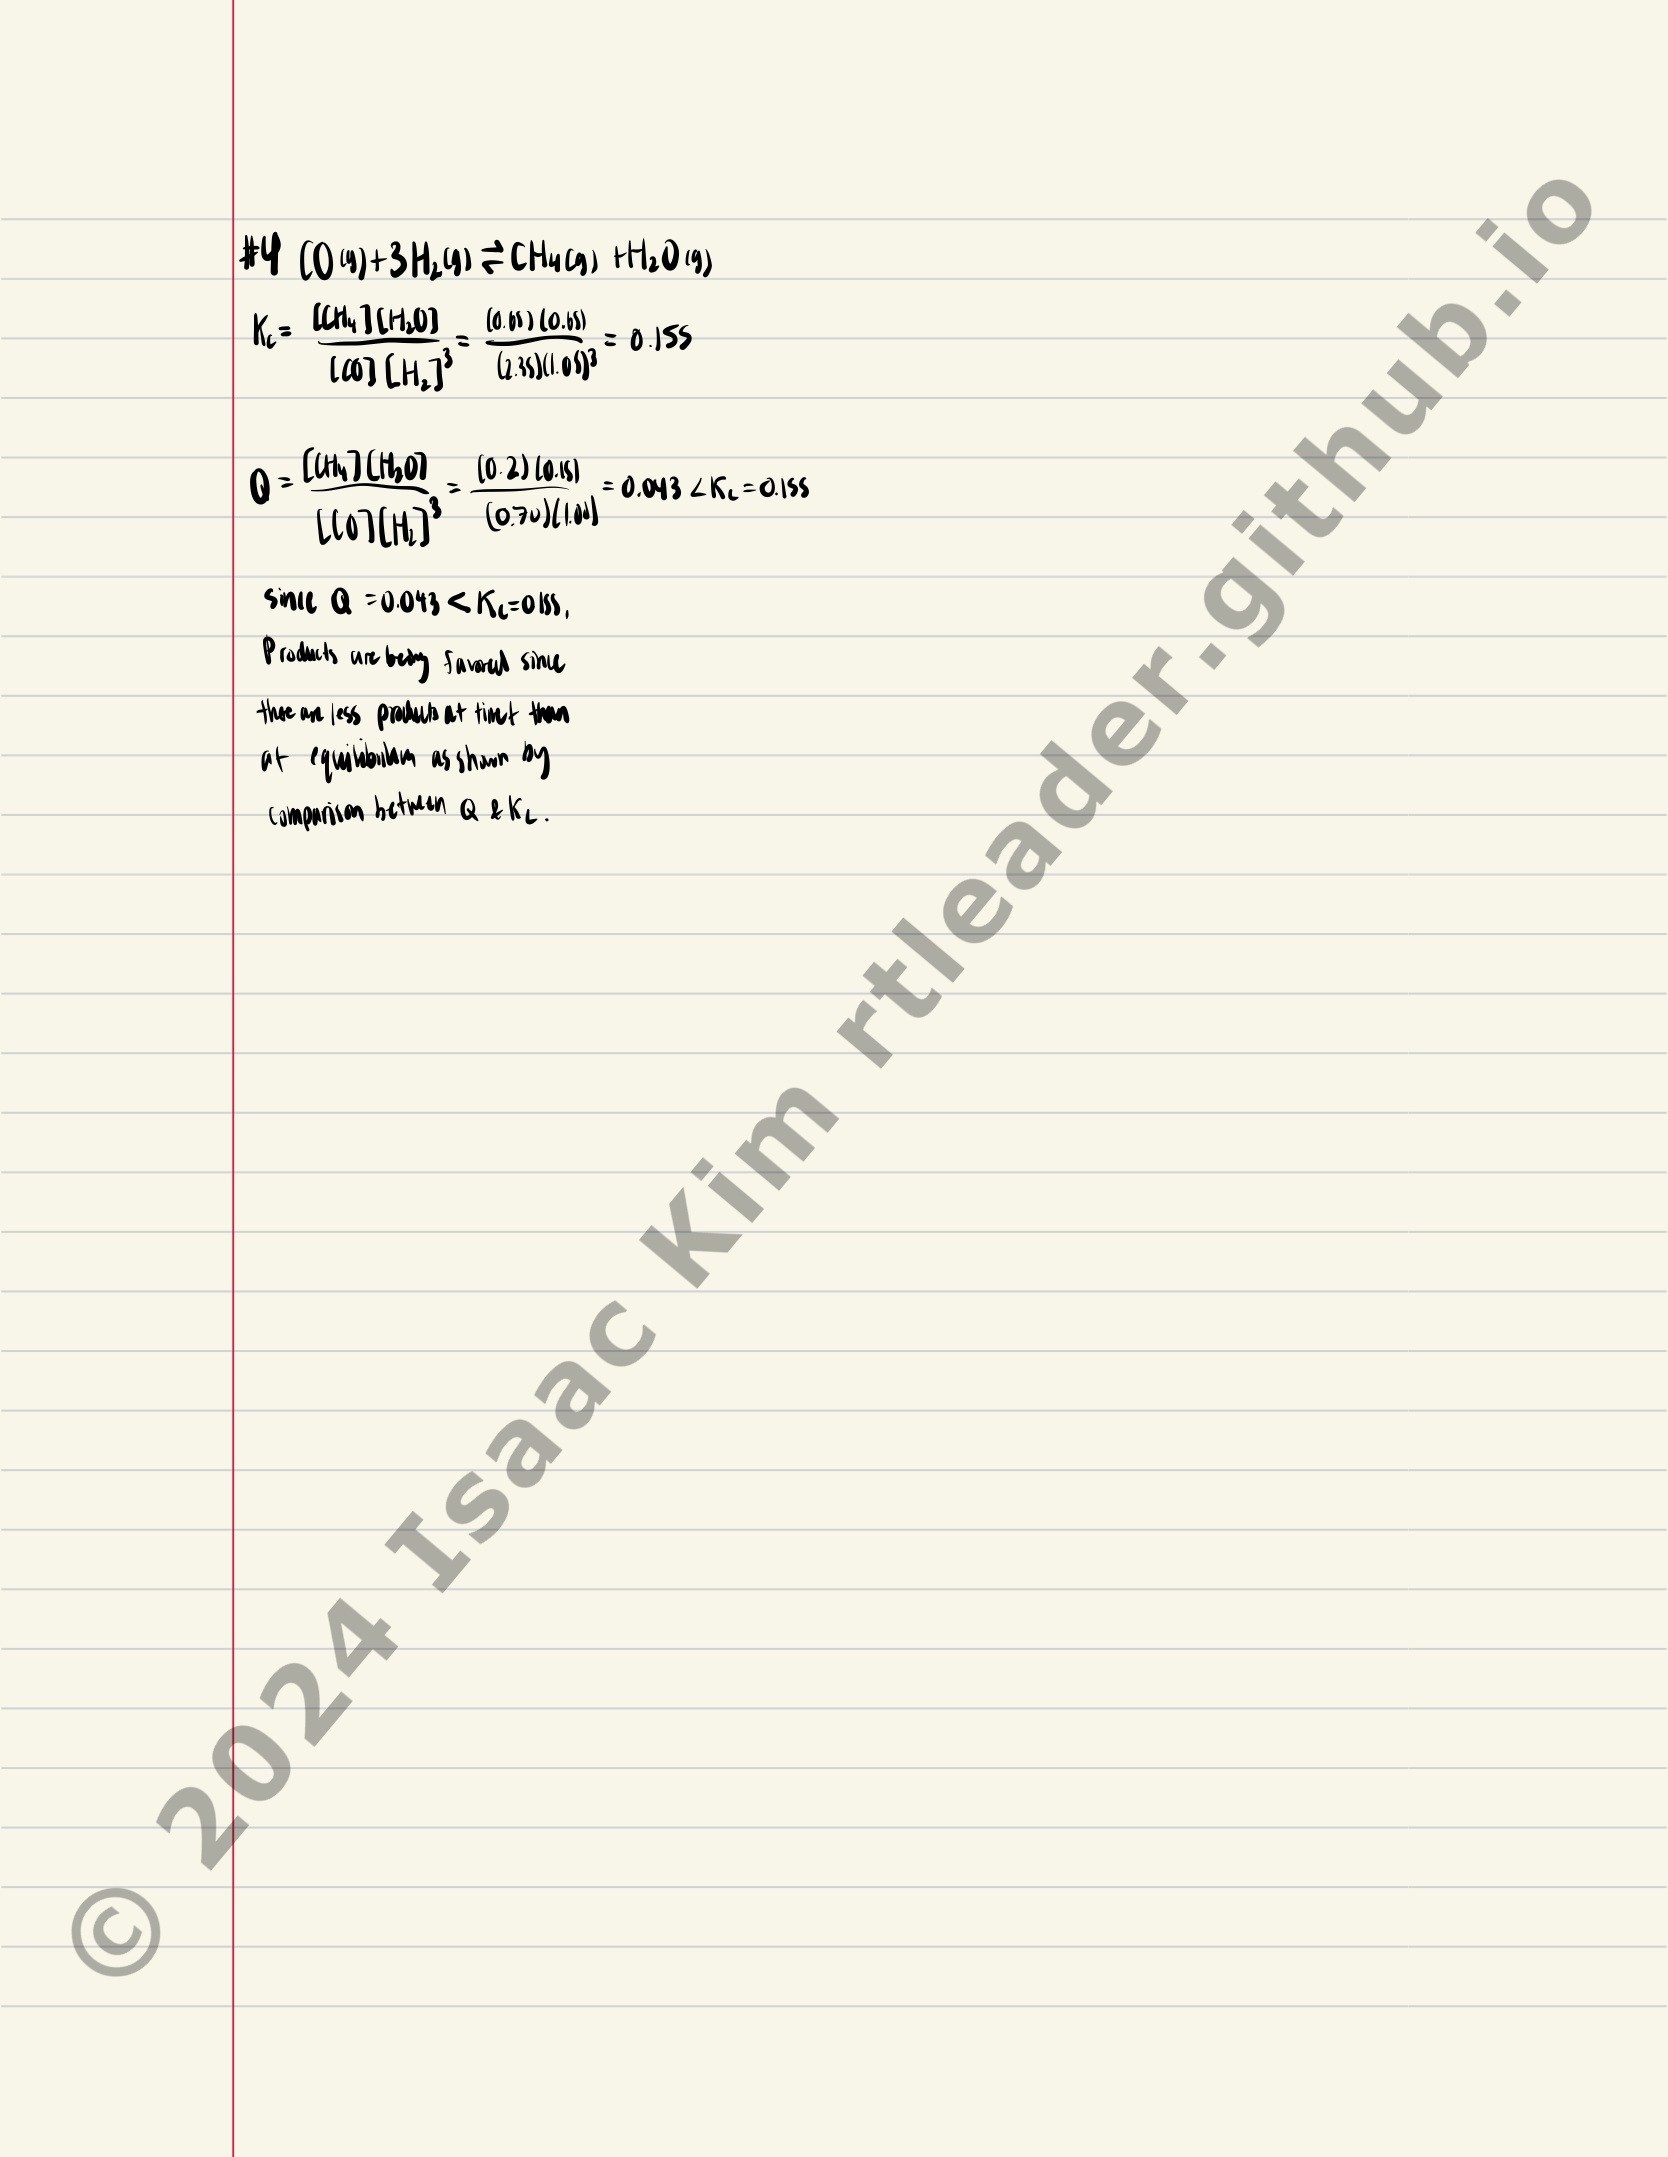 #4 CO(g)+3H₂(g) ⇌ CH₄(g) +H₂O(g)
Kc = [CH₄][H₂O] / [CO][H₂]³ = (0.65)(0.65) / (2.35)(1.05)³ = 0.155
Q = [CH₄][H₂O] / [CO][H₂]³ = (0.2)(0.15) / (0.70)(1.00) = 0.043 < Kc = 0.155
since Q = 0.043 < Kc = 0.155,
Products are being favored since
there are less products at time t than
at equilibrium as shown by
comparison between Q & Kc.
© 2024 Isaac Kim rtleader.github.io